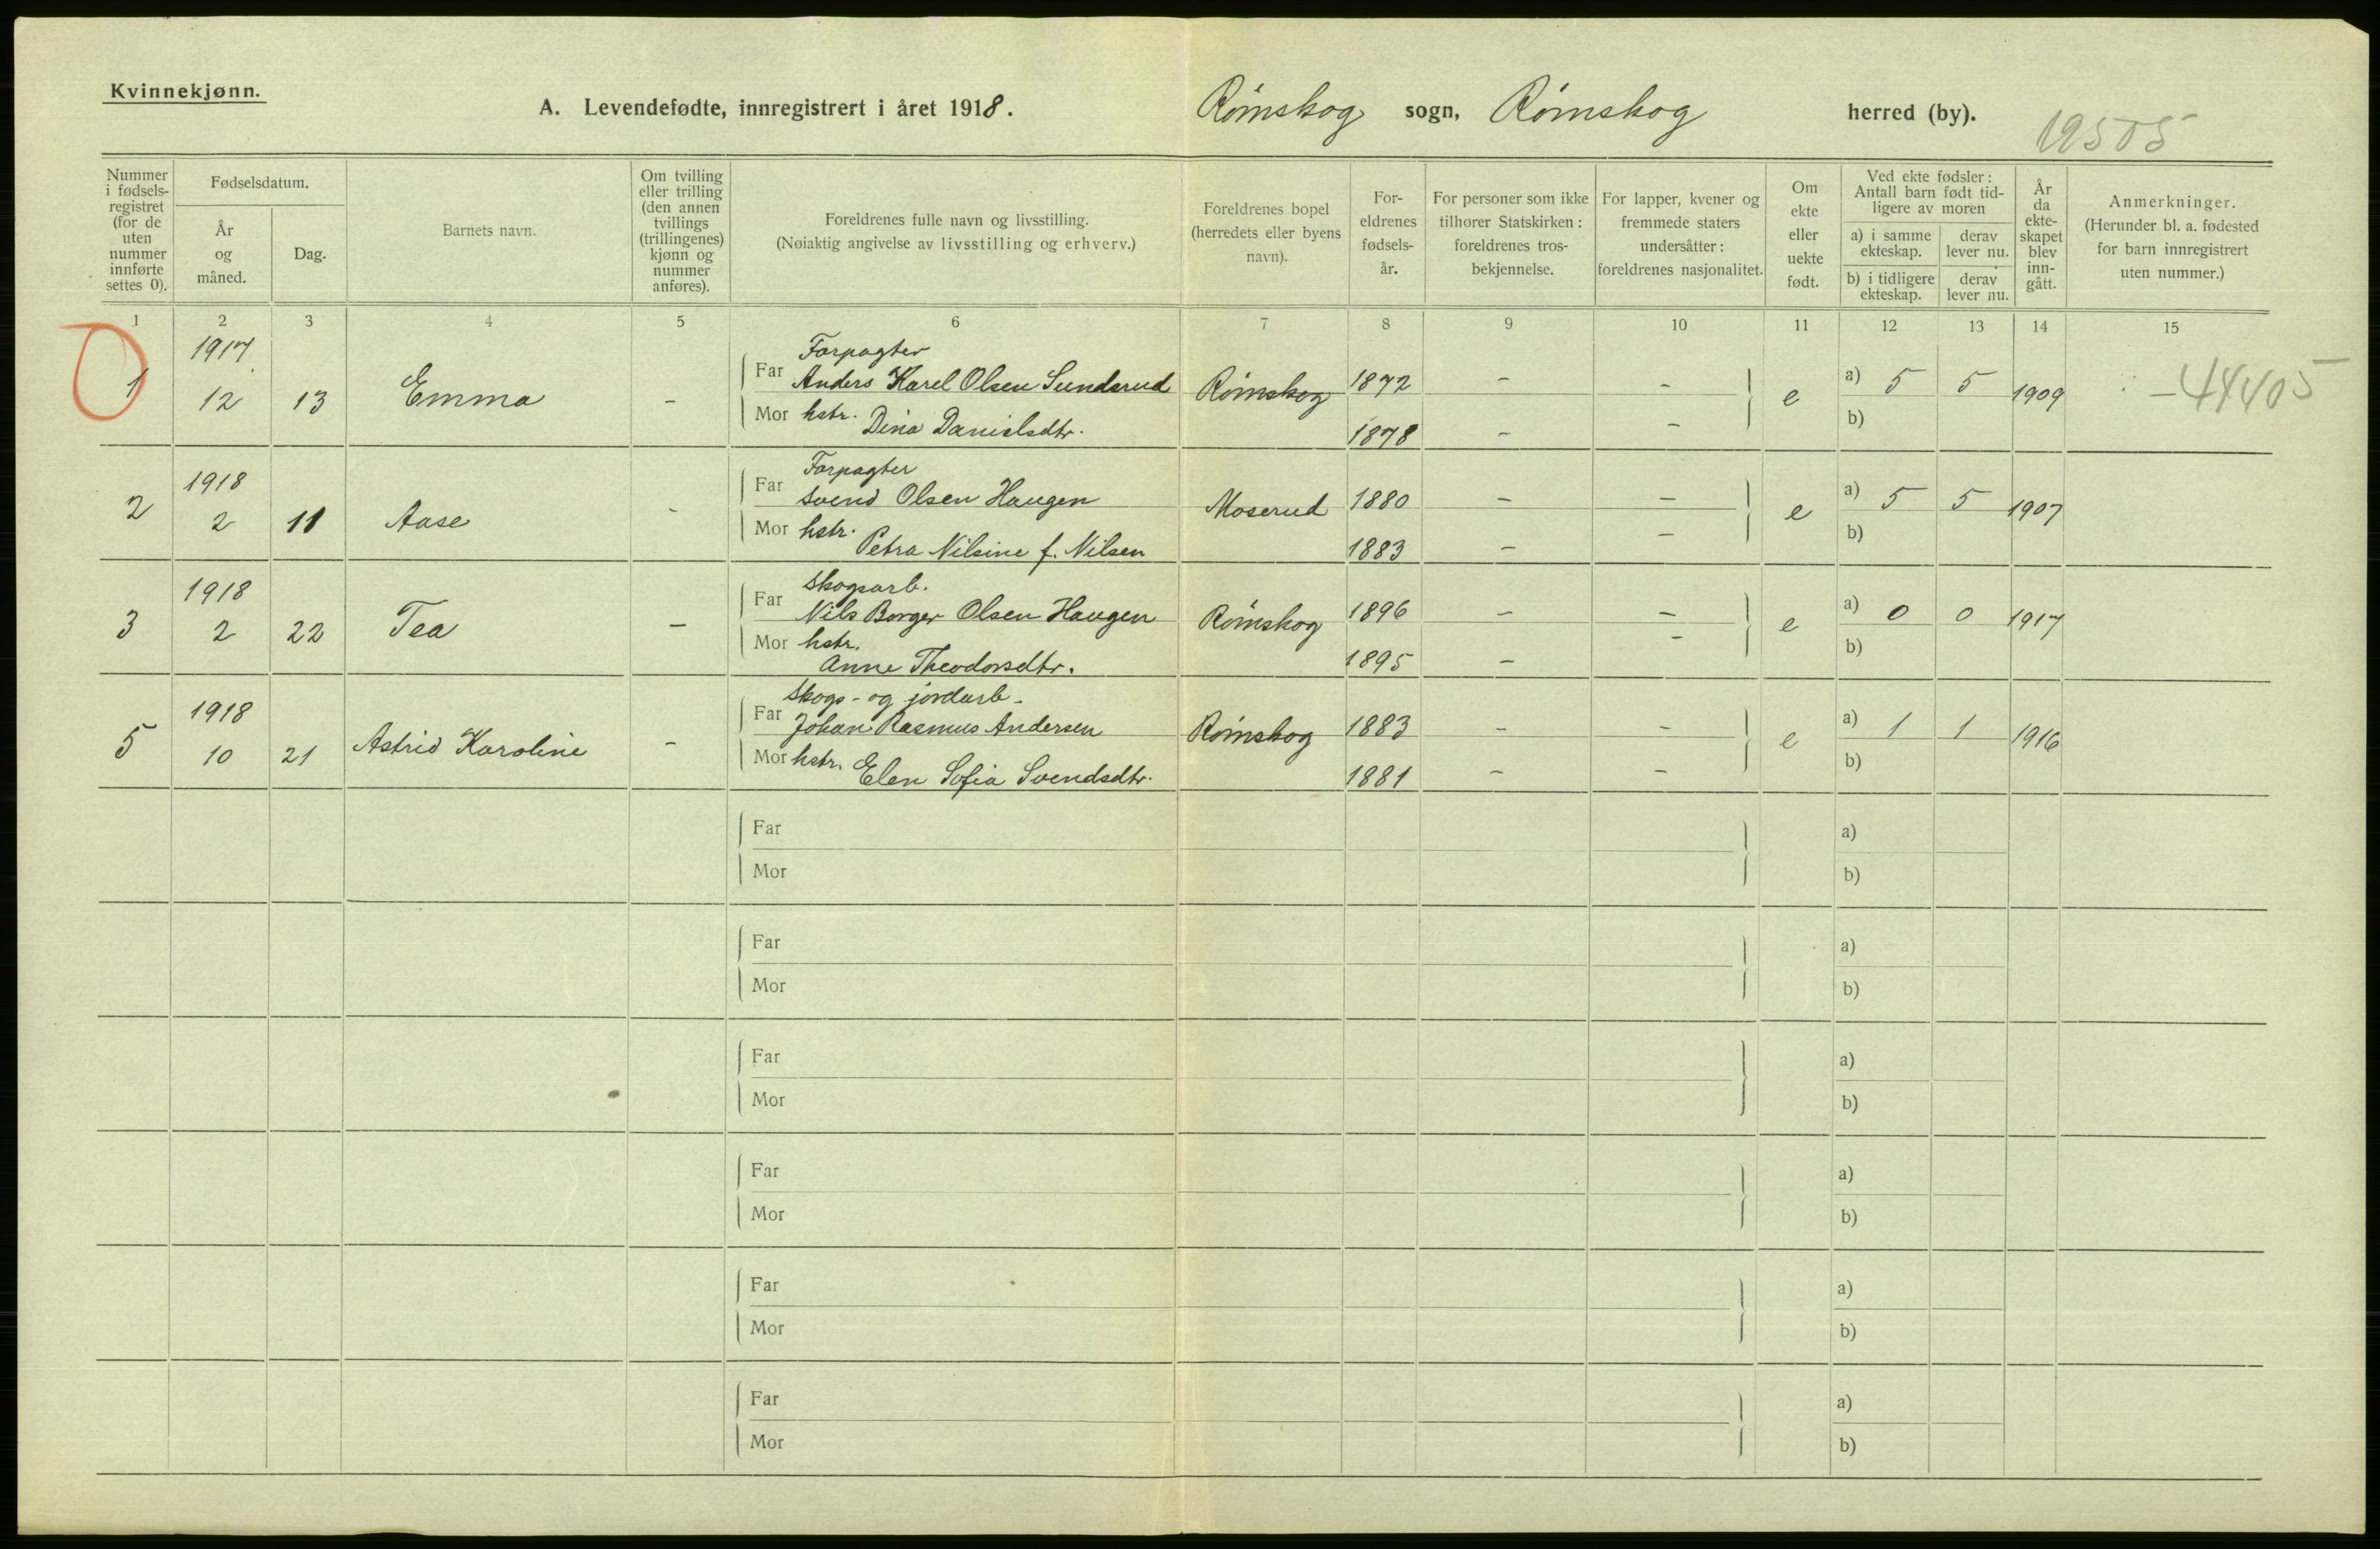 Kvinnekjønn.
A. Levendefødte, innregistrert i året 1918.
Rømskog sogn, Rømskog herred (by).
12505
Nummer i fødsels-registret (for de uten nummer innførte settes 0).
Fødselsdatum.
År og måned.
Dag.
Barnets navn.
Om tvilling eller trilling (den annen tvillings (trillingenes) kjønn og nummer anføres).
Foreldrenes fulle navn og livsstilling.
(Nøiaktig angivelse av livsstilling og erhverv.)
Foreldrenes bopel (herredets eller byens navn).
For-eldrenes fødsels-år.
For personer som ikke tilhører Statskirken: foreldrenes tros-bekjennelse.
For lapper, kvener og fremmede staters undersåtter: foreldrenes nasjonalitet.
Om ekte eller uekte født.
Ved ekte fødsler: Antall barn født tid-ligere av moren
a) i samme ekteskap.
derav lever nu.
b) i tidligere ekteskap.
derav lever nu.
År da ekte-skapet blev inn-gått.
Anmerkninger.
(Herunder bl. a. fødested for barn innregistrert uten nummer.)
1 2 3 4 5 6 7 8 9 10 11 12 13 14 15
1917
Forpagter
1 12 13 Emma - Far Anders Karel Olsen Sundsrud Rømskog 1872 - - e a) 5 5 1909 - 44405
Mor hstr. Dina Danielsdtr. 1878 - - b)
1918
Forpagter
2 2 11 Aase - Far Svend Olsen Haugen Moserud 1880 - - e a) 5 5 1907
Mor hstr. Petra Nilsine f. Nilsen 1883 - - b)
1918
Skogsarb.
3 2 22 Tea - Far Nils Borger Olsen Haugen Rømskog 1896 - - e a) 0 0 1917
Mor hstr. Anne Theodorsdtr. 1895 - - b)
1918
Skogs- og jordarb.
5 10 21 Astrid Karoline - Far Johan Rasmus Andersen Rømskog 1883 - - e a) 1 1 1916
Mor hstr. Elen Sofia Svendsdtr. 1881 - - b)
Far a)
Mor b)
Far a)
Mor b)
Far a)
Mor b)
Far a)
Mor b)
Far a)
Mor b)
Far a)
Mor b)